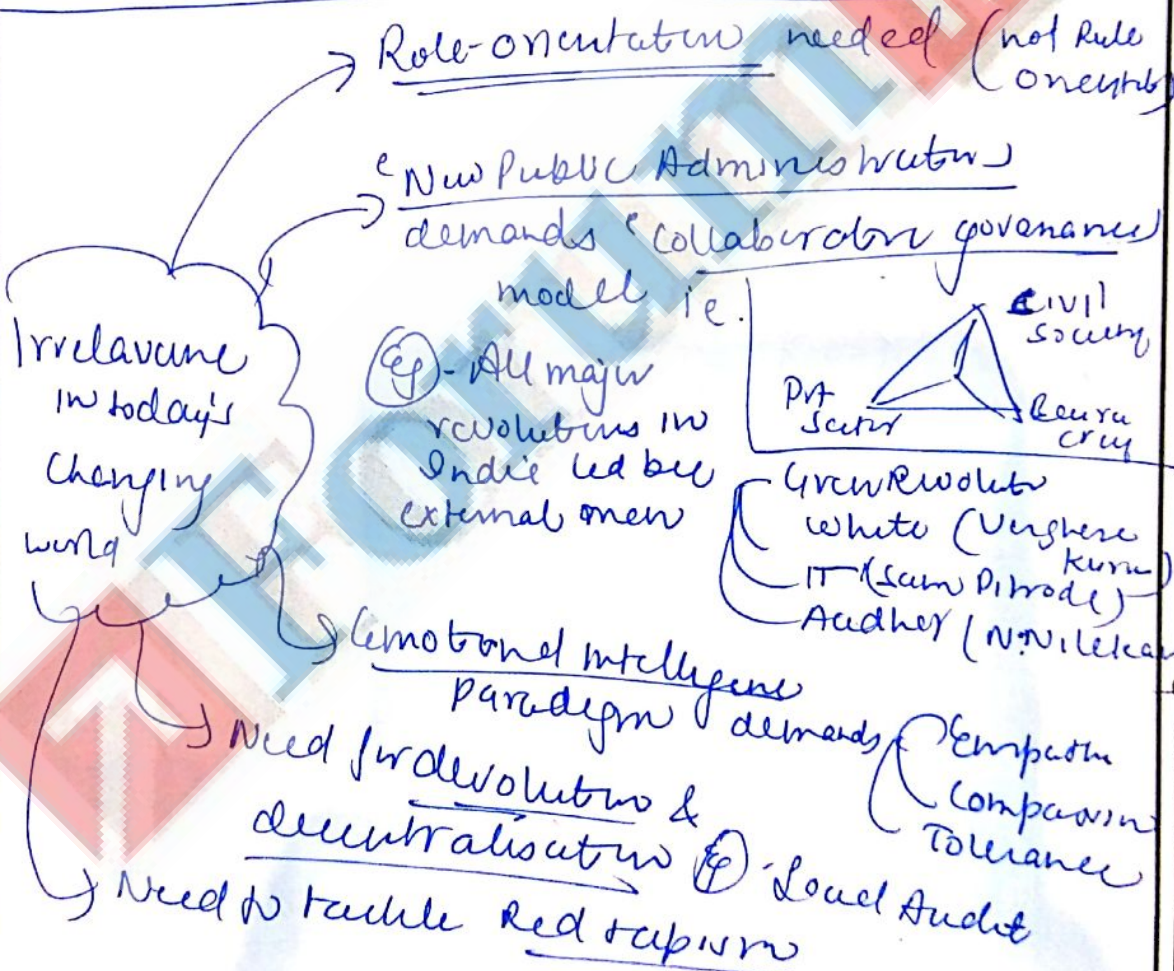 Role-orientation needed (not Rule
oriented)
'New Public Administration
demands 'collaborative governance
model ie.
Civil
society
Pvt
Sector
Beura
cracy
Irrelavance
in today's
changing
world
Eg - All major
revolutions in
India led by
external men
Green Revolution
White (Verghese
Kurien)
IT (Sam Pitroda)
Aadhar (N. Nilekani
Emotional intelligence
paradigm demands
Empathy
Compassion
Tolerance
Need for devolution &
decentralisation Eg - Social Audit
Need to tackle Red tapism
Forum